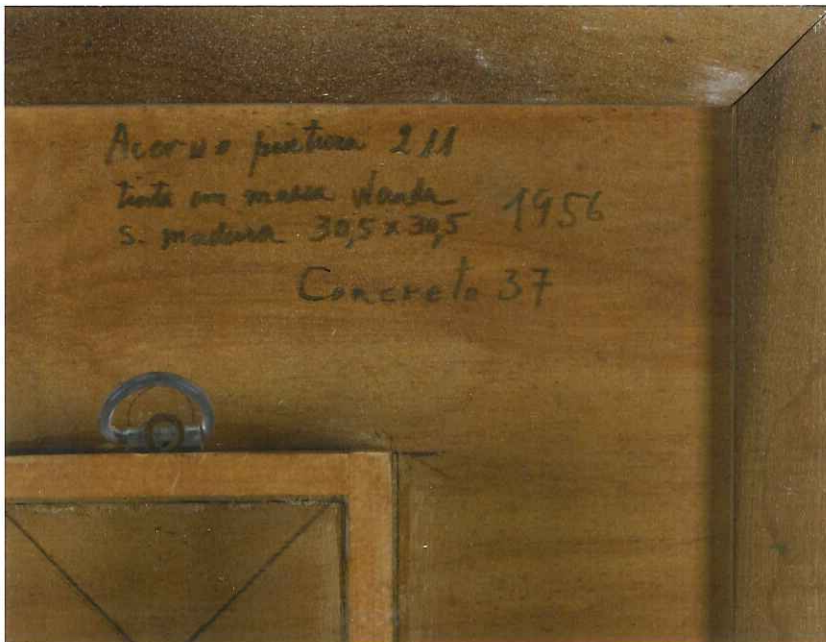 Acervo pintura 211
tinta em massa
s. madeira 30,5 x 30,5 1956
Concreto 37